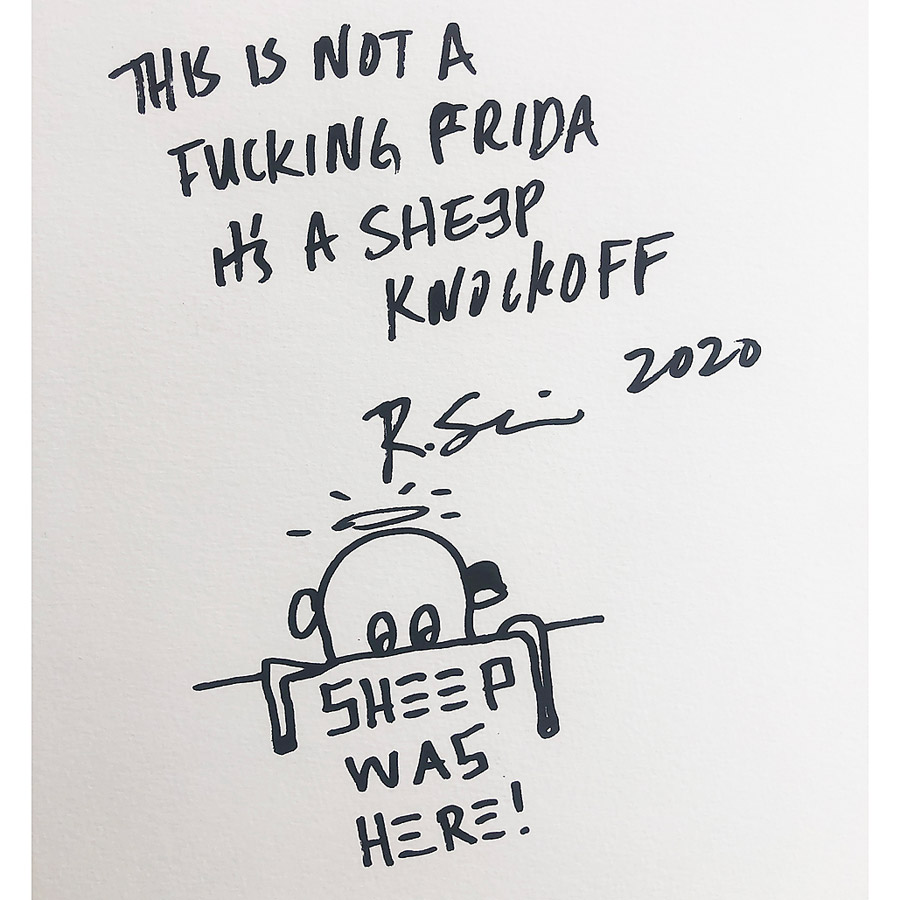 THIS IS NOT A
FUCKING FRIDA
It's A SHEEP
KNOCKOFF
2020
SHEEP
WAS
HERE!